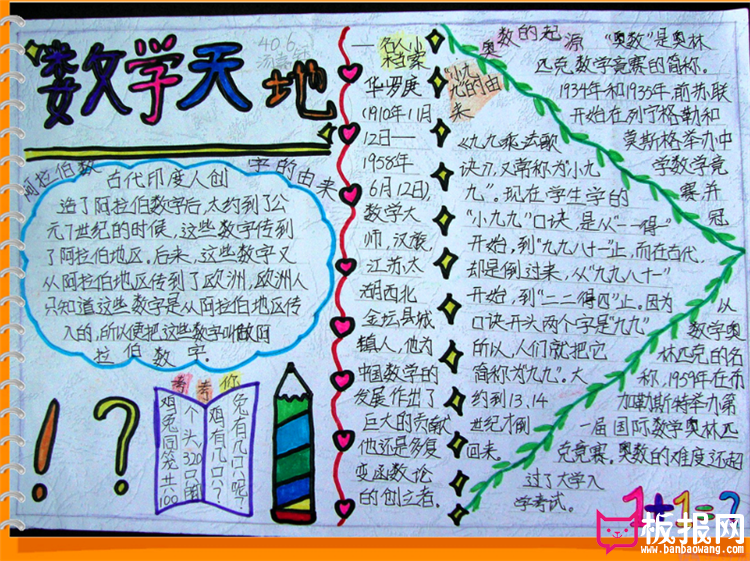 数学天地
40.6
阿拉伯数字的由来
古代印度人创
造了阿拉伯数字后,大约到了公
元7世纪的时候,这些数字传到
了阿拉伯地区。后来,这些数字又
从阿拉伯地区传到了欧洲,欧洲人
只知道这些数字是从阿拉伯地区传
入的,所以便把这些数字叫做阿
拉伯数字.
!
?
考考你
鸡兔同笼共100
个头,320只脚
鸡有几只?
兔有几只呢?
名人小
档案
华罗庚
(1910年11月
12日——
1958年
6月12日),
数学大
师,汉族,
江苏太
湖西北
金坛县城
镇人,他为
中国数学的
发展作出了
巨大的贡献
他还是多复
变函数论
的创立者。
“小九
九”的由
来
《九九乘法歌
诀》,又常称为“小九
九”。现在学生学的
“小九九”口诀,是从“一一得一”
开始,到“九九八十一”止,而在古代,
却是倒过来,从“九九八十一”
开始,到“二二得四”止。因为
口诀开头两个字是“九九”
所以,人们就把它
简称为“九九”。大
约到13、14
世纪才倒
回来。
奥数的起源
“奥数”是奥林
匹克数学竞赛的简称。
1934年和1935年,前苏联
开始在列宁格勒和
莫斯格举办中
学数学竞
赛,并
冠
以
数学奥
林匹克的名
称,1959年在布
加勒斯特举办第
一届国际数学奥林匹
克竞赛。奥数的难度还超
过了大学入
学考试。
1+1=?
板报网
www.banbaowang.com